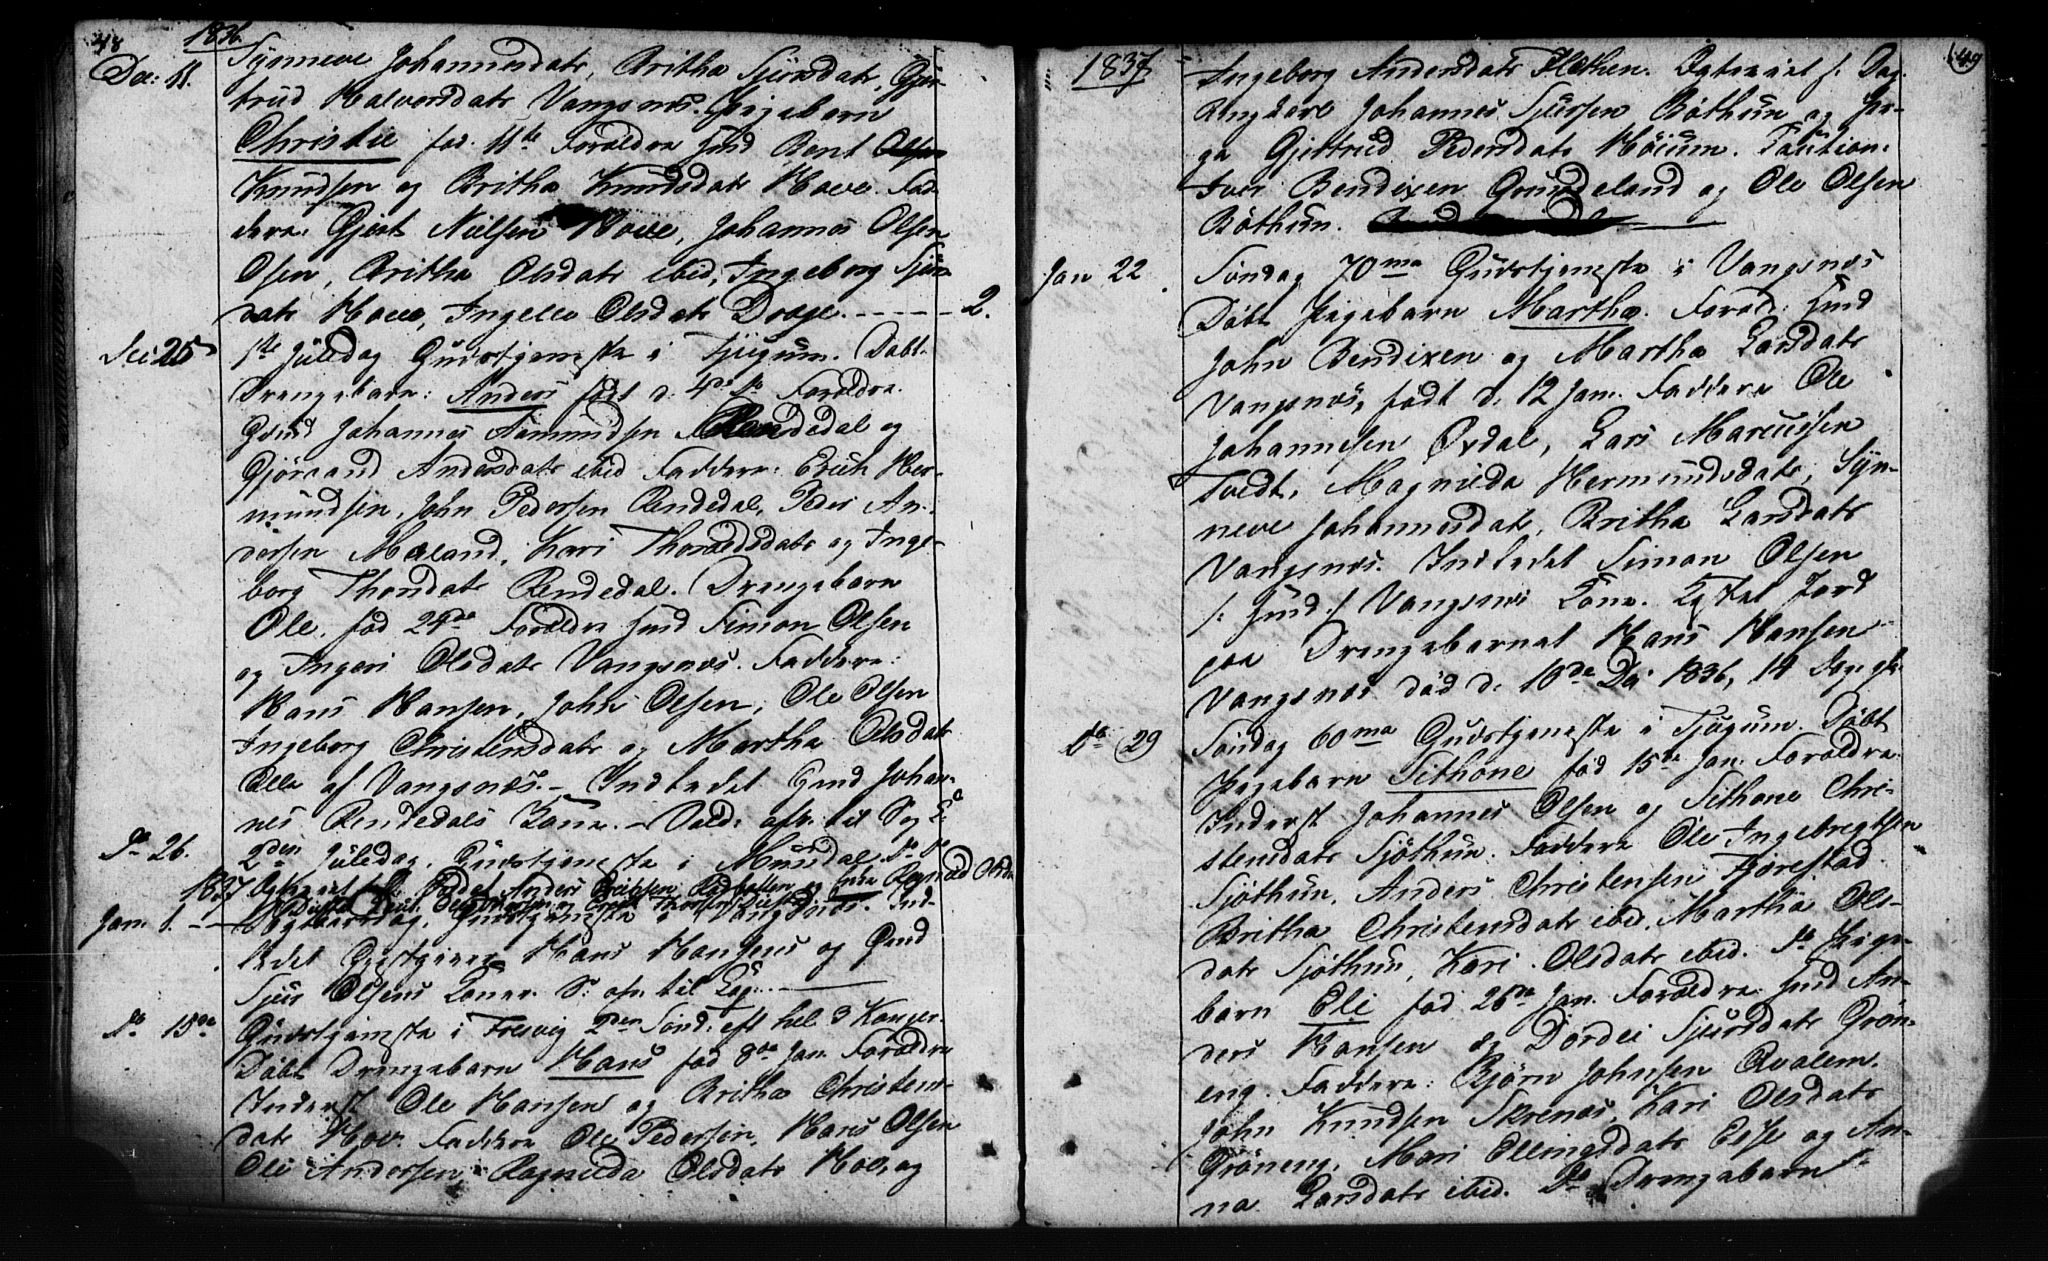 48
1836.
Dec: 11. Synneve Johannesdatr, Britha Sjursdatr, Gjer-
trud Halvorsdatr Vangsnæs. Pigebarn
Christie fød 11te Forældre Hmd Bent Olsen
Knudsen og Britha Knudsdatr Hove. Fad-
dere: Gjert Nielsen Hove, Johannes Olsen
Olsen, Britha Olsdatr ibid, Ingeborg Sjurs-
datr Hove, Ingelev Olsdatr Drage. - - - - - 2.
Dec: 25 1ste Juledag Gudstjeneste i Tjugum. Døbt
Drengebarn: Anders født d. 4de Forældre
Gmd Johannes Amundsen Rendedal og
Gjørand Andersdatr ibid Faddere: Erich Her-
mundsen, John Pedersen Rendedal, Peder An-
dersen Mæland, Kari Thoraldsdatr og Inge-
borg Thorsdatr Rendedal. Drengebarn
Ole, fød Forældre Hmd Simon Olsen
og Ingeri Olsdatr Vangsnæs. Faddere:
Hans Hansen, John Olsen, Ole Olsen
Ingeborg Christensdatr og Martha Olsdatr
Alle af Vangsnæs. - Indledet Gmd Johan-
nes Rendedals Kone. -
Do 26. 2den Juledag, Gudstjeneste i Mundal
1837
Jan. 1. - - Nytaarsdag, Gudstjeneste i Vangsnæs. Ind-
ledet Hans Hansens og Gmd
Sjur Olsens Koner.
Do 15de Gudstjeneste i Fresvig 2den Sønd: eft hel 3 Konger
Døbt Drengebarn Hans fød 8de Jan. Forældre
Inderst Ole Hansen og Britha Christens-
datr Hov. Faddere Ole Pedersen, Hans Olsen
Ole Andersen, Ragnilda Olsdatr Hov, og
49
1837 Ingeborg Andersdatr Flethen. Ogtaviet
Ungkarl Johannes Sjursen Bøthun og Pi-
ge Gjertrud Pedersdatr Høium. Caution:
Iver Bendixen Grindeland og Ole Olsen
Bøthun.
Jan 22. Søndag 70ma Gudstjeneste i Vangsnæs
Døbt Pigebarn Martha. Foræld: Hmd
John Bendixen og Martha Larsdatr
Vangsnæs, født d. 12 Jan. Faddere Ole
Johannesen Oxdal, Lars Marcussen
Tvedt, Magnilda Hermundsdatr, Syn-
neve Johannesdatr, Britha Larsdatr
Vangsnæs. Indledet Simon Olsen
/: Hmd :/ Vangsnæs Kone. Kastet Jord
paa Drengebarnet Hans Hansen
Vangsnæs død d. 10de De: 1836, 14 Dage gl:
Do 29 Søndag 60ma Gudstjeneste i Tjugum. Døbt
Pigebarn Sithone fød 15de Jan. Forældre
Inderst Johannes Olsen og Sithone Chri-
stensdatr Sjøthun. Faddere Ole Ingebregtsen
Sjøthun, Anders Christensen Fjørestad
Britha Christensdatr ibid. Martha Ols-
datr Sjøthun, Kari Olsdatr ibid. Do Pige-
barn Eli fød 26de Jan. Forældre Hmd An-
ders Hansen og Dordei Sjursdatr Grøn-
eng. Faddere: Bjørn Johnsen Qvalem.
John Knudsen Skrenæs, Kari Olsdatr
Grøneng, Mari Ellingsdatr Esse og An-
na Larsdatr ibid. Do Drengebarn